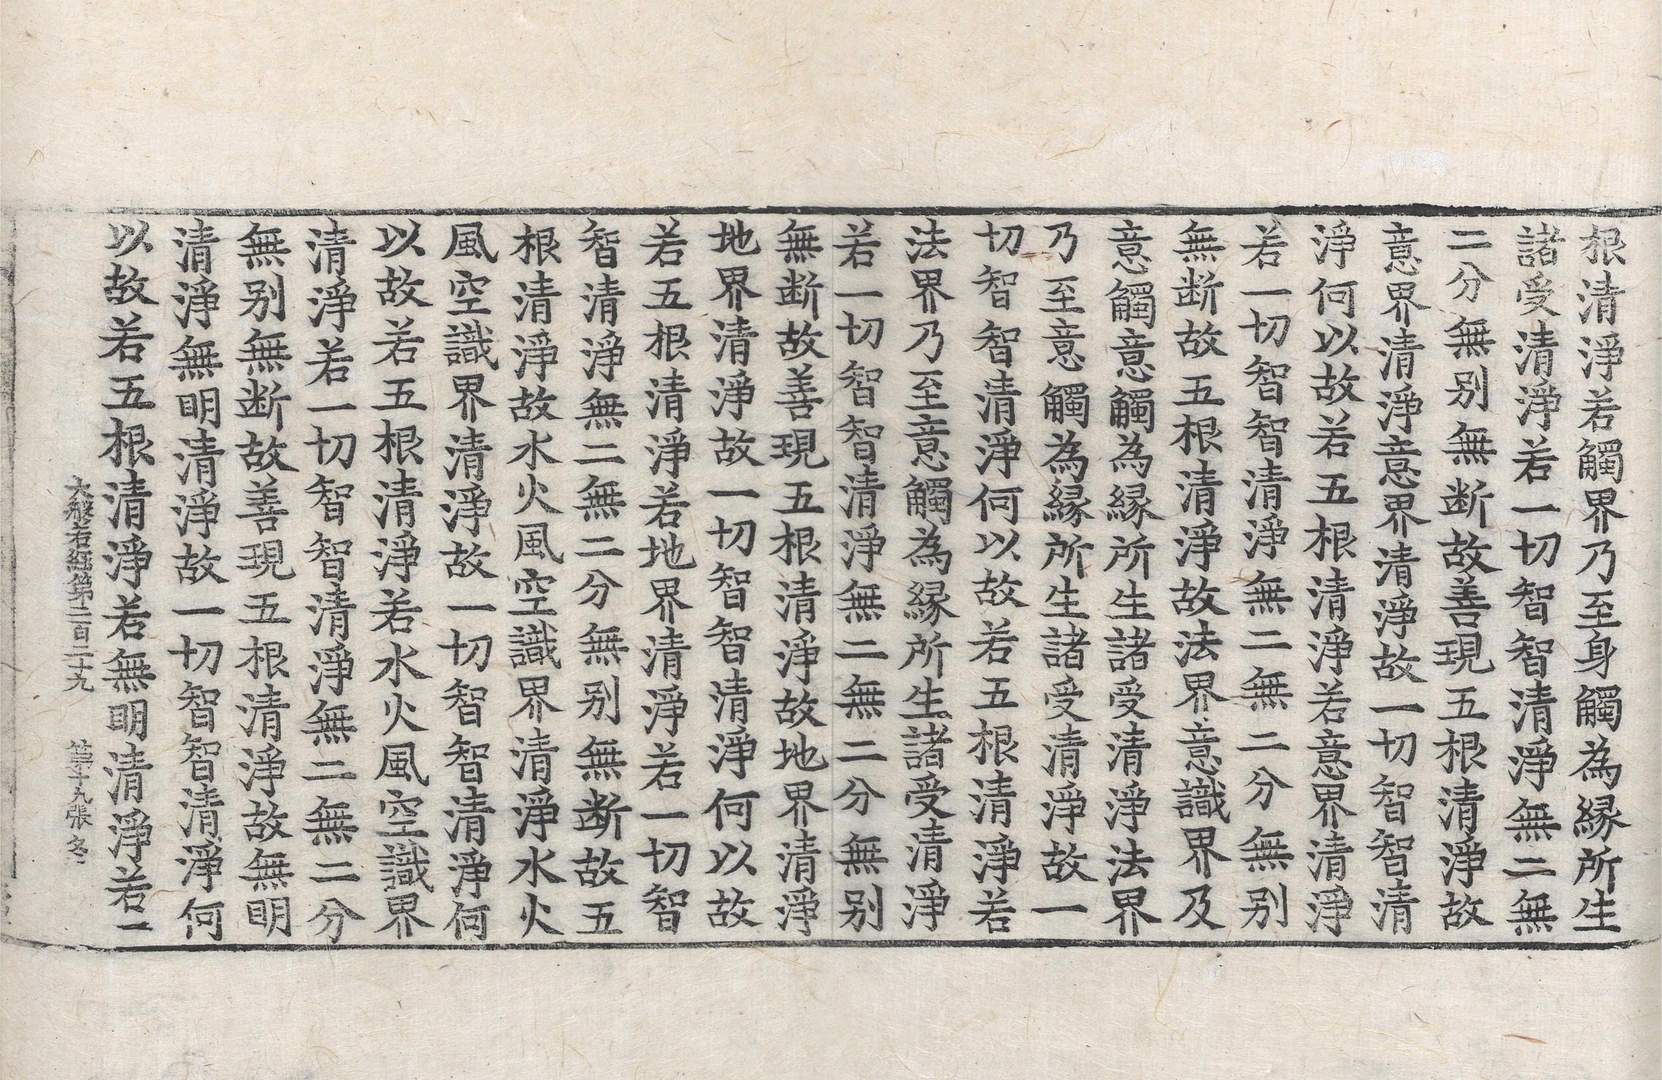 根清淨若觸界乃至身觸為縁所生
諸受清淨若一切智智清淨無二無
二分無别無断故善現五根清淨故
意界清淨意界清淨故一切智智清
淨何以故若五根清淨若意界清淨
若一切智智清淨無二無二分無别
無断故五根清淨故法界意識界及
意觸意觸為縁所生諸受清淨法界
乃至意觸為縁所生諸受清淨故一
切智智清淨何以故若五根清淨若
法界乃至意觸為縁所生諸受清淨
若一切智智清淨無二無二分無别
無断故善現五根清淨故地界清淨
地界清淨故一切智智清淨何以故
若五根清淨若地界清淨若一切智
智清淨無二無二分無别無断故五
根清淨故水火風空識界清淨水火
風空識界清淨故一切智智清淨何
以故若五根清淨若水火風空識界
清淨若一切智智清淨無二無二分
無别無断故善現五根清淨故無明
清淨無明清淨故一切智智清淨何
以故若五根清淨若無明清淨若一
大般若經第二百二十九 第十九張 冬